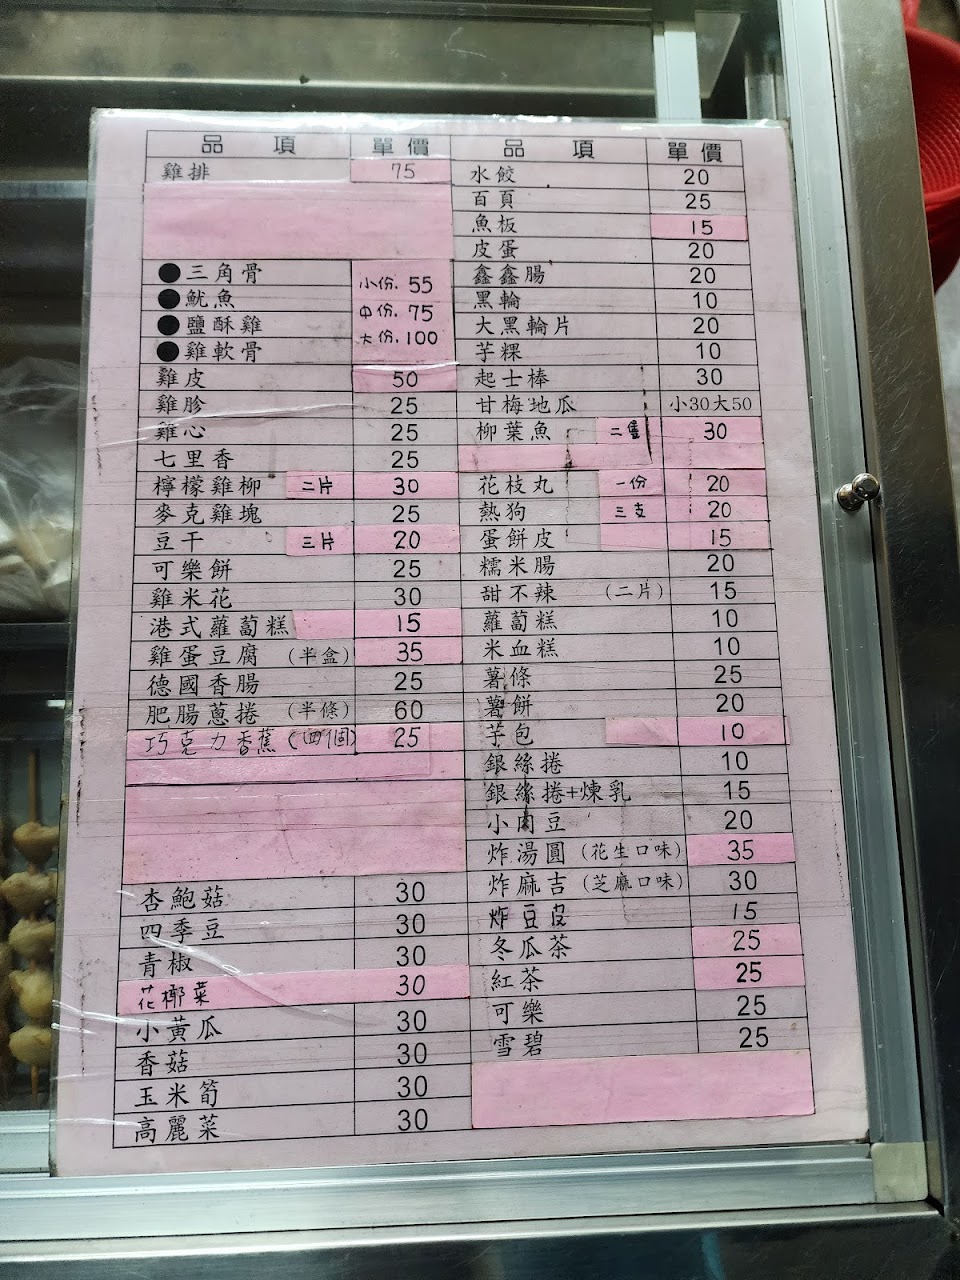 品 項 單價
雞排 75
●三角骨 小份. 55
●魷魚 中份. 75
●鹽酥雞 大份. 100
●雞軟骨
雞皮 50
雞胗 25
雞心 25
七里香 25
檸檬雞柳 二片 30
麥克雞塊 25
豆干 三片 20
可樂餅 25
雞米花 30
港式蘿蔔糕 15
雞蛋豆腐 (半盒) 35
德國香腸 25
肥腸蔥捲 (半條) 60
巧克力香蕉(四個) 25
杏鮑菇 30
四季豆 30
青椒 30
花椰菜 30
小黃瓜 30
香菇 30
玉米筍 30
高麗菜 30
品 項 單價
水餃 20
百頁 25
魚板 15
皮蛋 20
鑫鑫腸 20
黑輪 10
大黑輪片 20
芋粿 10
起士棒 30
甘梅地瓜 小30大50
柳葉魚 二隻 30
花枝丸 一份 20
熱狗 三支 20
蛋餅皮 15
糯米腸 20
甜不辣 (二片) 15
蘿蔔糕 10
米血糕 10
薯條 25
薯餅 20
芋包 10
銀絲捲 10
銀絲捲+煉乳 15
小肉豆 20
炸湯圓(花生口味) 35
炸麻吉(芝麻口味) 30
炸豆皮 15
冬瓜茶 25
紅茶 25
可樂 25
雪碧 25